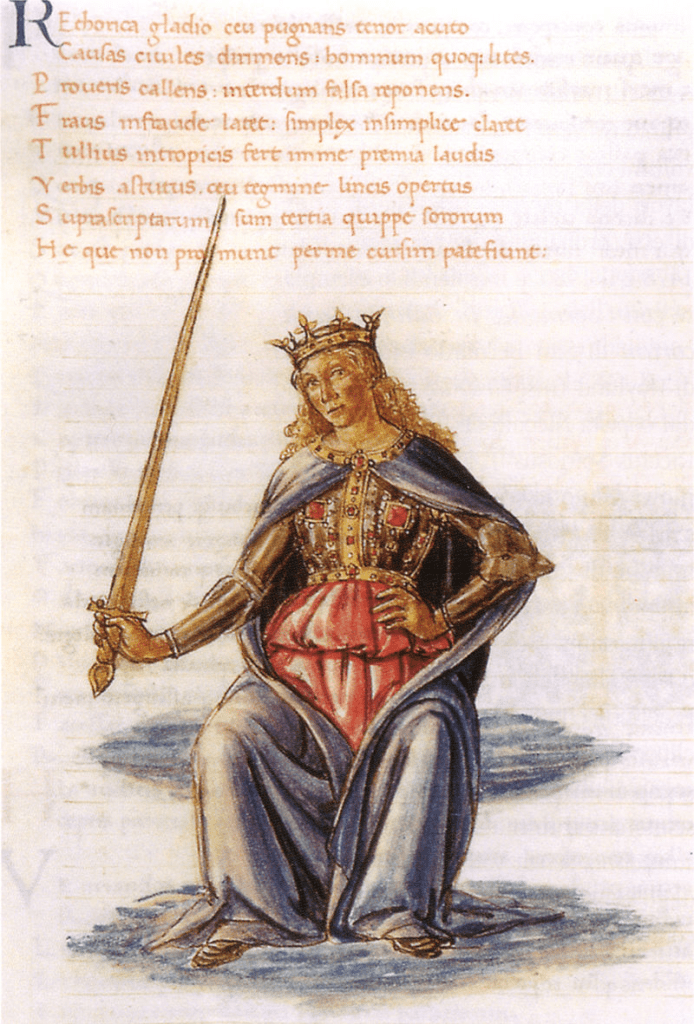 REthorica gladio ceu pugnans tenor acuto
Causas ciuiles dirimens: hominum quoq: lites.
Proueris callens: interdum falsa reponens.
Fraus infraude latet: simplex insimplice claret
Tullius intropicis fert imme premia laudis
Verbis astutus, ceu tegmine lincis opertus
Suprascriptarum sum tertia quippe sororum
He que non promunt perme cursim patefiunt: